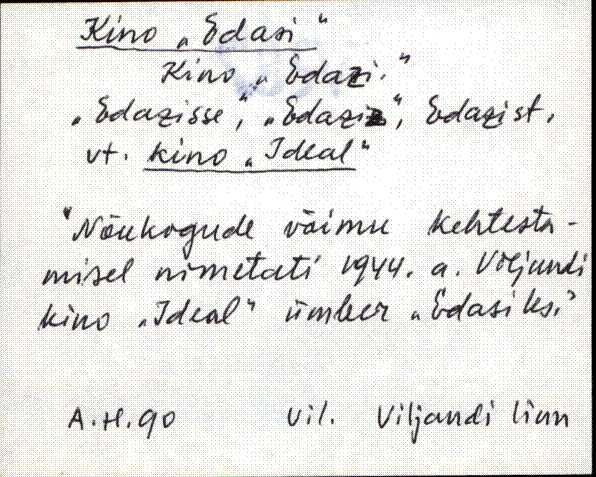 Kino „Edasi"
Kino „Edazi."
„Edazisse", „Edaziz", Edazist.
vt. kino „Ideal"
"Nõukogude võimu kehtesta-
misel nimetati 1944. a. Viljandi
kino „Ideal" ümber „Edasiks."
A.H.90 Vil. Viljandi linn